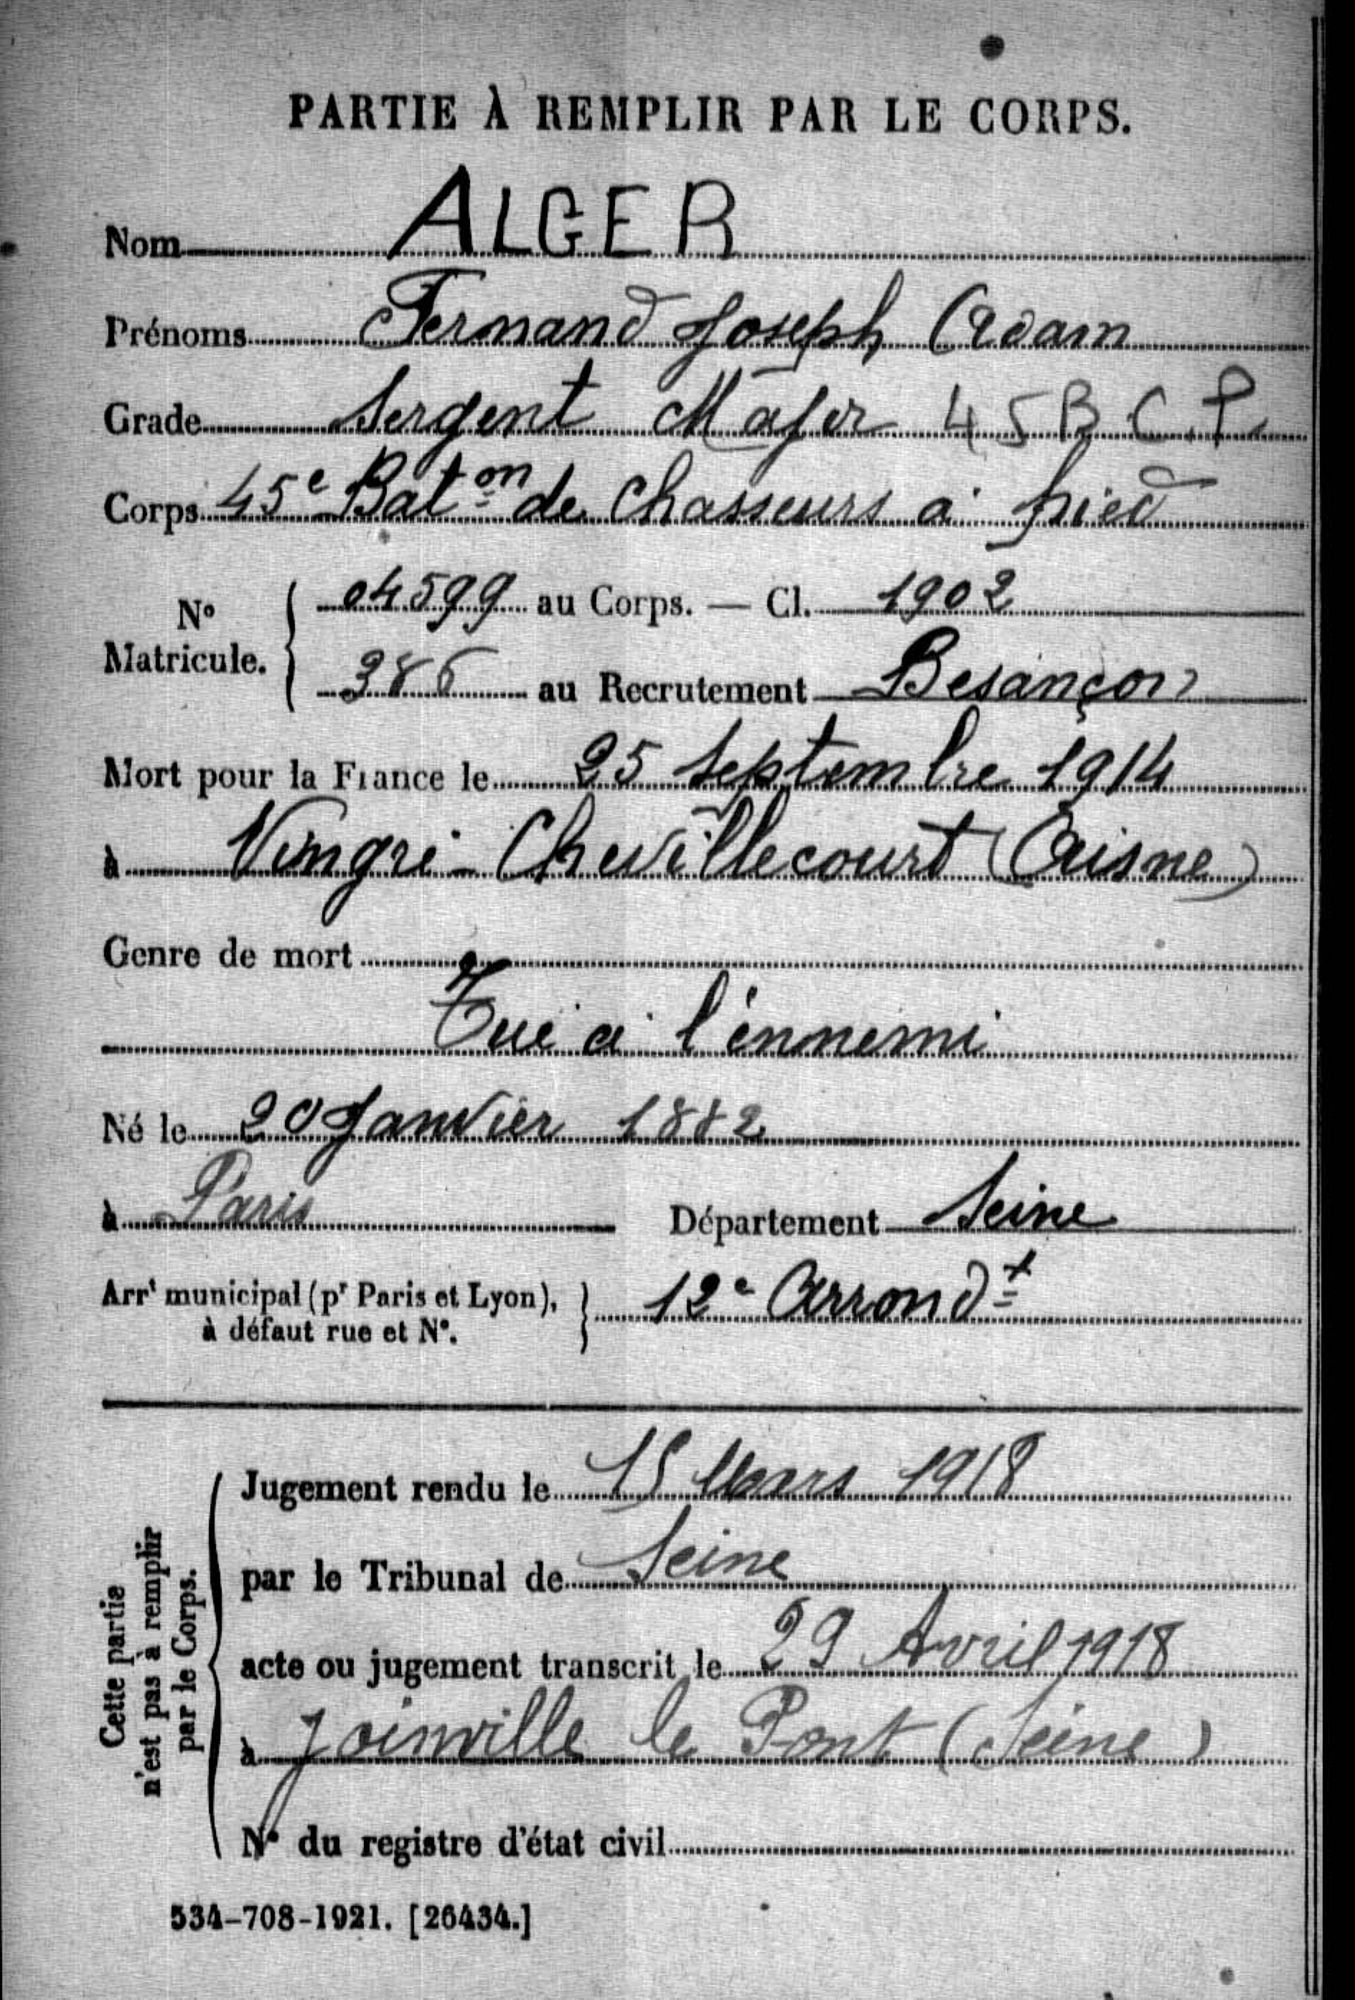 PARTIE À REMPLIR PAR LE CORPS.
Nom ALGER
Prénoms Fernand Joseph Adam
Grade Sergent Major 45 B.C.P.
Corps 45e Bat.on de chasseurs à pied
No Matricule. { 04599 au Corps. — Cl. 1902
386 au Recrutement Besançon
Mort pour la France le 25 Septembre 1914
à Vingré - Chevillecourt (Aisne)
Genre de mort
Tué à l'ennemi
Né le 20 Janvier 1882
à Paris Département Seine
Arrt municipal (pr Paris et Lyon), à défaut rue et No. } 12e Arrondt
Cette partie n'est pas à remplir par le Corps.
Jugement rendu le 15 Mars 1918
par le Tribunal de Seine
acte ou jugement transcrit le 29 Avril 1918
à Joinville le Pont (Seine)
No du registre d'état civil
534-708-1921. [26434.]